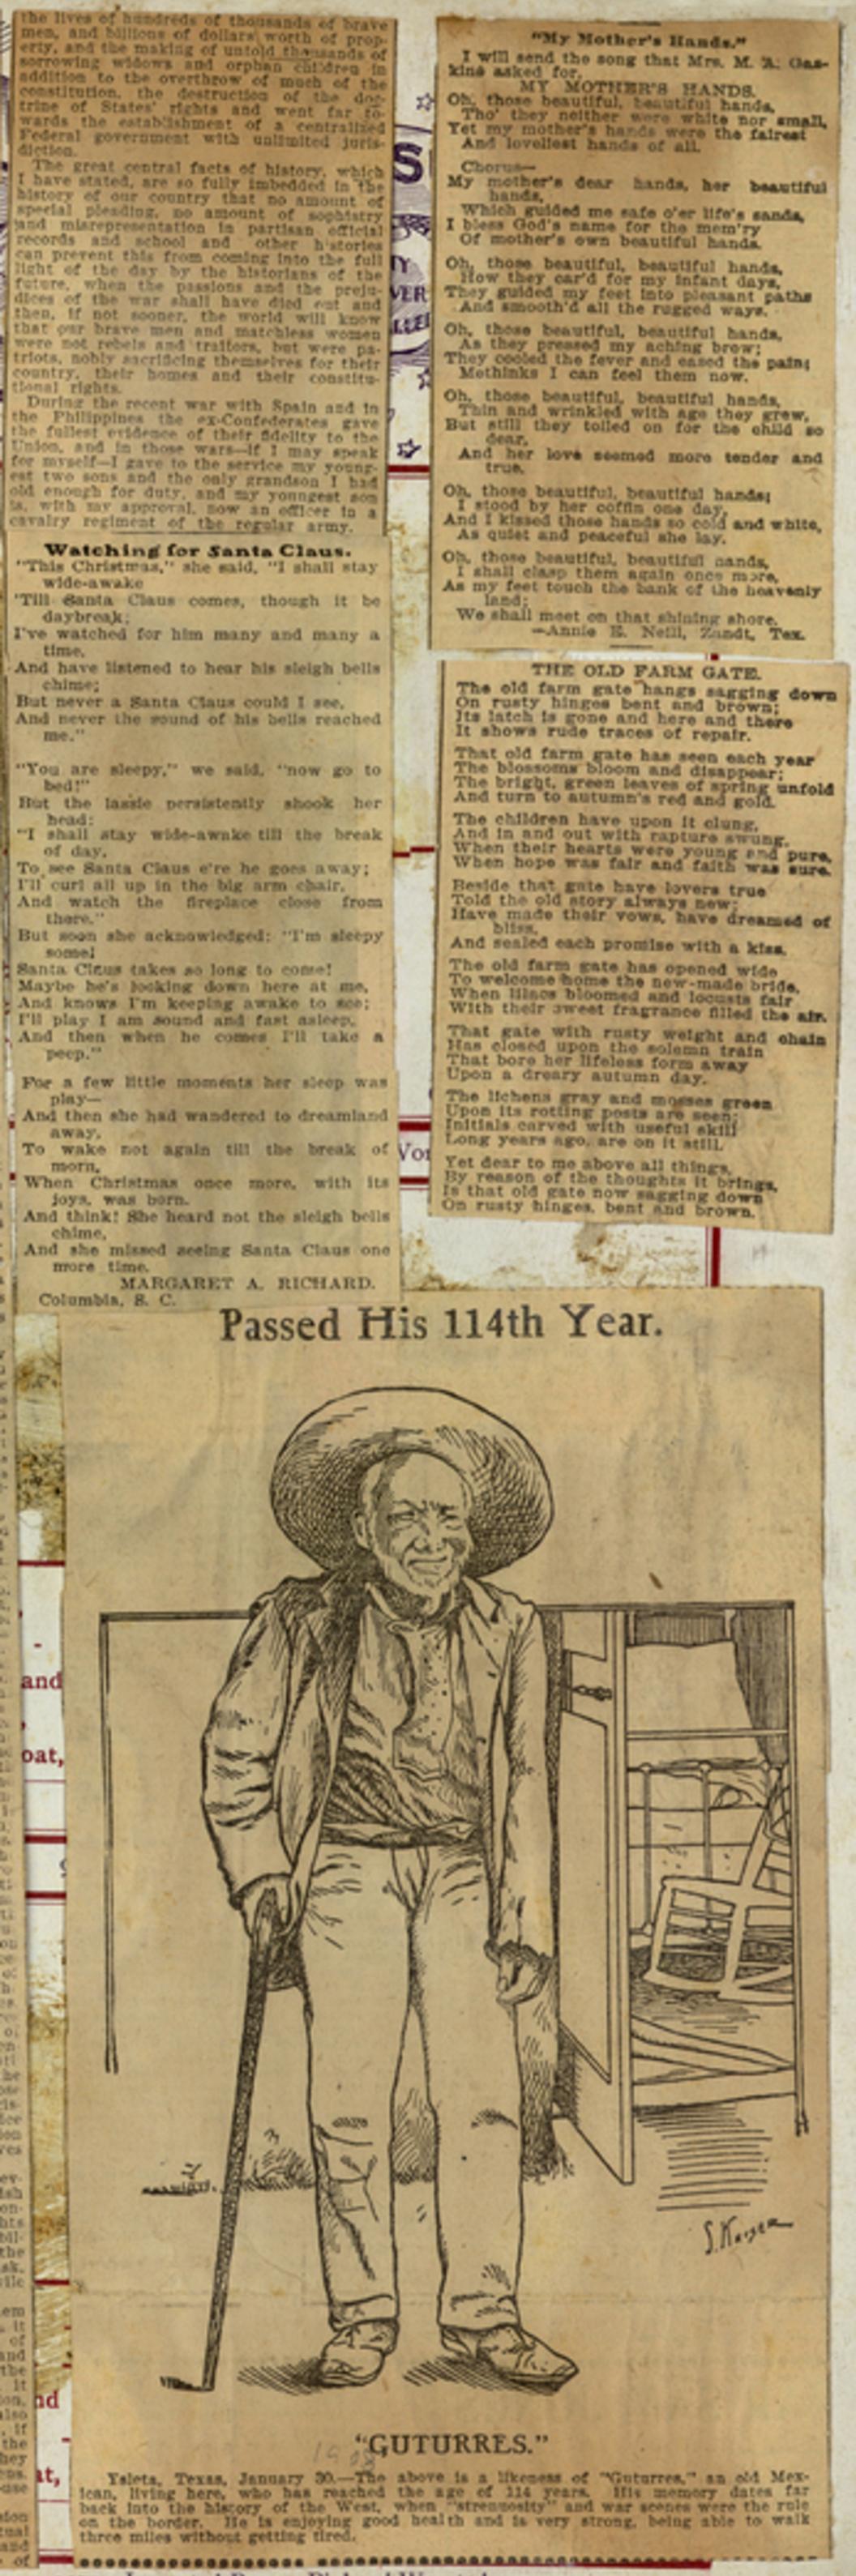 the lives of hundreds of thousands of brave
men, and billions of dollars worth of prop-
erty, and the making of untold thousands of
sorrowing widows and orphan children in
addition to the overthrow of much of the
constitution, the destruction of the doc-
trine of States' rights and went far to-
wards the establishment of a centralized
Federal government with unlimited juris-
diction.
The great central facts of history, which
I have stated, are so fully imbedded in the
history of our country that no amount of
special pleading, no amount of sophistry
and misrepresentation in partisan official
records and school and other histories
can prevent this from coming into the full
light of the day by the historians of the
future, when the passions and the preju-
dices of the war shall have died out and
then, if not sooner, the world will know
that our brave men and matchless women
were not rebels and traitors, but were pa-
triots, nobly sacrificing themselves for their
country, their homes and their constitu-
tional rights.
During the recent war with Spain and in
the Philippines the ex-Confederates gave
the fullest evidence of their fidelity to the
Union, and in those wars—if I may speak
for myself—I gave to the service my young-
est two sons and the only grandson I had
old enough for duty, and my youngest son
is, with my approval, now an officer in a
cavalry regiment of the regular army.
Watching for Santa Claus.
"This Christmas," she said, "I shall stay
wide-awake
'Till Santa Claus comes, though it be
daybreak;
I've watched for him many and many a
time,
And have listened to hear his sleigh bells
chime;
But never a Santa Claus could I see,
And never the sound of his bells reached
me."
"You are sleepy," we said, "now go to
bed!"
But the lassie persistently shook her
head:
"I shall stay wide-awake till the break
of day,
To see Santa Claus e're he goes away;
I'll curl all up in the big arm chair,
And watch the fireplace close from
there."
But soon she acknowledged: "I'm sleepy
some!
Santa Claus takes so long to come!
Maybe he's looking down here at me,
And knows I'm keeping awake to see;
I'll play I am sound and fast asleep,
And then when he comes I'll take a
peep."
For a few little moments her sleep was
play—
And then she had wandered to dreamland
away,
To wake not again till the break of
morn,
When Christmas once more, with its
joys, was born.
And think! She heard not the sleigh bells
chime,
And she missed seeing Santa Claus one
more time.
MARGARET A. RICHARD.
Columbia, S. C.
"My Mother's Hands."
I will send the song that Mrs. M. A. Gas-
kins asked for.
MY MOTHER'S HANDS.
Oh, those beautiful, beautiful hands,
Tho' they neither were white nor small,
Yet my mother's hands were the fairest
And loveliest hands of all.
Chorus—
My mother's dear hands, her beautiful
hands,
Which guided me safe o'er life's sands,
I bless God's name for the mem'ry
Of mother's own beautiful hands.
Oh, those beautiful, beautiful hands,
How they car'd for my infant days,
They guided my feet into pleasant paths
And smooth'd all the rugged ways.
Oh, those beautiful, beautiful hands,
As they pressed my aching brow;
They cooled the fever and eased the pain;
Methinks I can feel them now.
Oh, those beautiful, beautiful hands,
Thin and wrinkled with age they grew,
But still they toiled on for the child so
dear,
And her love seemed more tender and
true.
Oh, those beautiful, beautiful hands;
I stood by her coffin one day,
And I kissed those hands so cold and white,
As quiet and peaceful she lay.
Oh, those beautiful, beautiful hands,
I shall clasp them again once more,
As my feet touch the bank of the heavenly
land;
We shall meet on that shining shore.
—Annie E. Neill, Zandt, Tex.
THE OLD FARM GATE.
The old farm gate hangs sagging down
On rusty hinges bent and brown;
Its latch is gone and here and there
It shows rude traces of repair.
That old farm gate has seen each year
The blossoms bloom and disappear;
The bright, green leaves of spring unfold
And turn to autumn's red and gold.
The children have upon it clung,
And in and out with rapture swung,
When their hearts were young and pure,
When hope was fair and faith was sure.
Beside that gate have lovers true
Told the old story always new;
Have made their vows, have dreamed of
bliss,
And sealed each promise with a kiss.
The old farm gate has opened wide
To welcome home the new-made bride,
When lilacs bloomed and locusts fair
With their sweet fragrance filled the air.
That gate with rusty weight and chain
Has closed upon the solemn train
That bore her lifeless form away
Upon a dreary autumn day.
The lichens gray and mosses green
Upon its rotting posts are seen;
Initials carved with useful skill
Long years ago, are on it still.
Yet dear to me above all things,
By reason of the thoughts it brings,
Is that old gate now sagging down
On rusty hinges, bent and brown.
Passed His 114th Year.
S. Kaiser
"GUTURRES."
Ysleta, Texas, January 30.—The above is a likeness of "Guturres," an old Mex-
ican, living here, who has reached the age of 114 years. His memory dates far
back into the history of the West, when "strenuosity" and war scenes were the rule
on the border. He is enjoying good health and is very strong, being able to walk
three miles without getting tired.